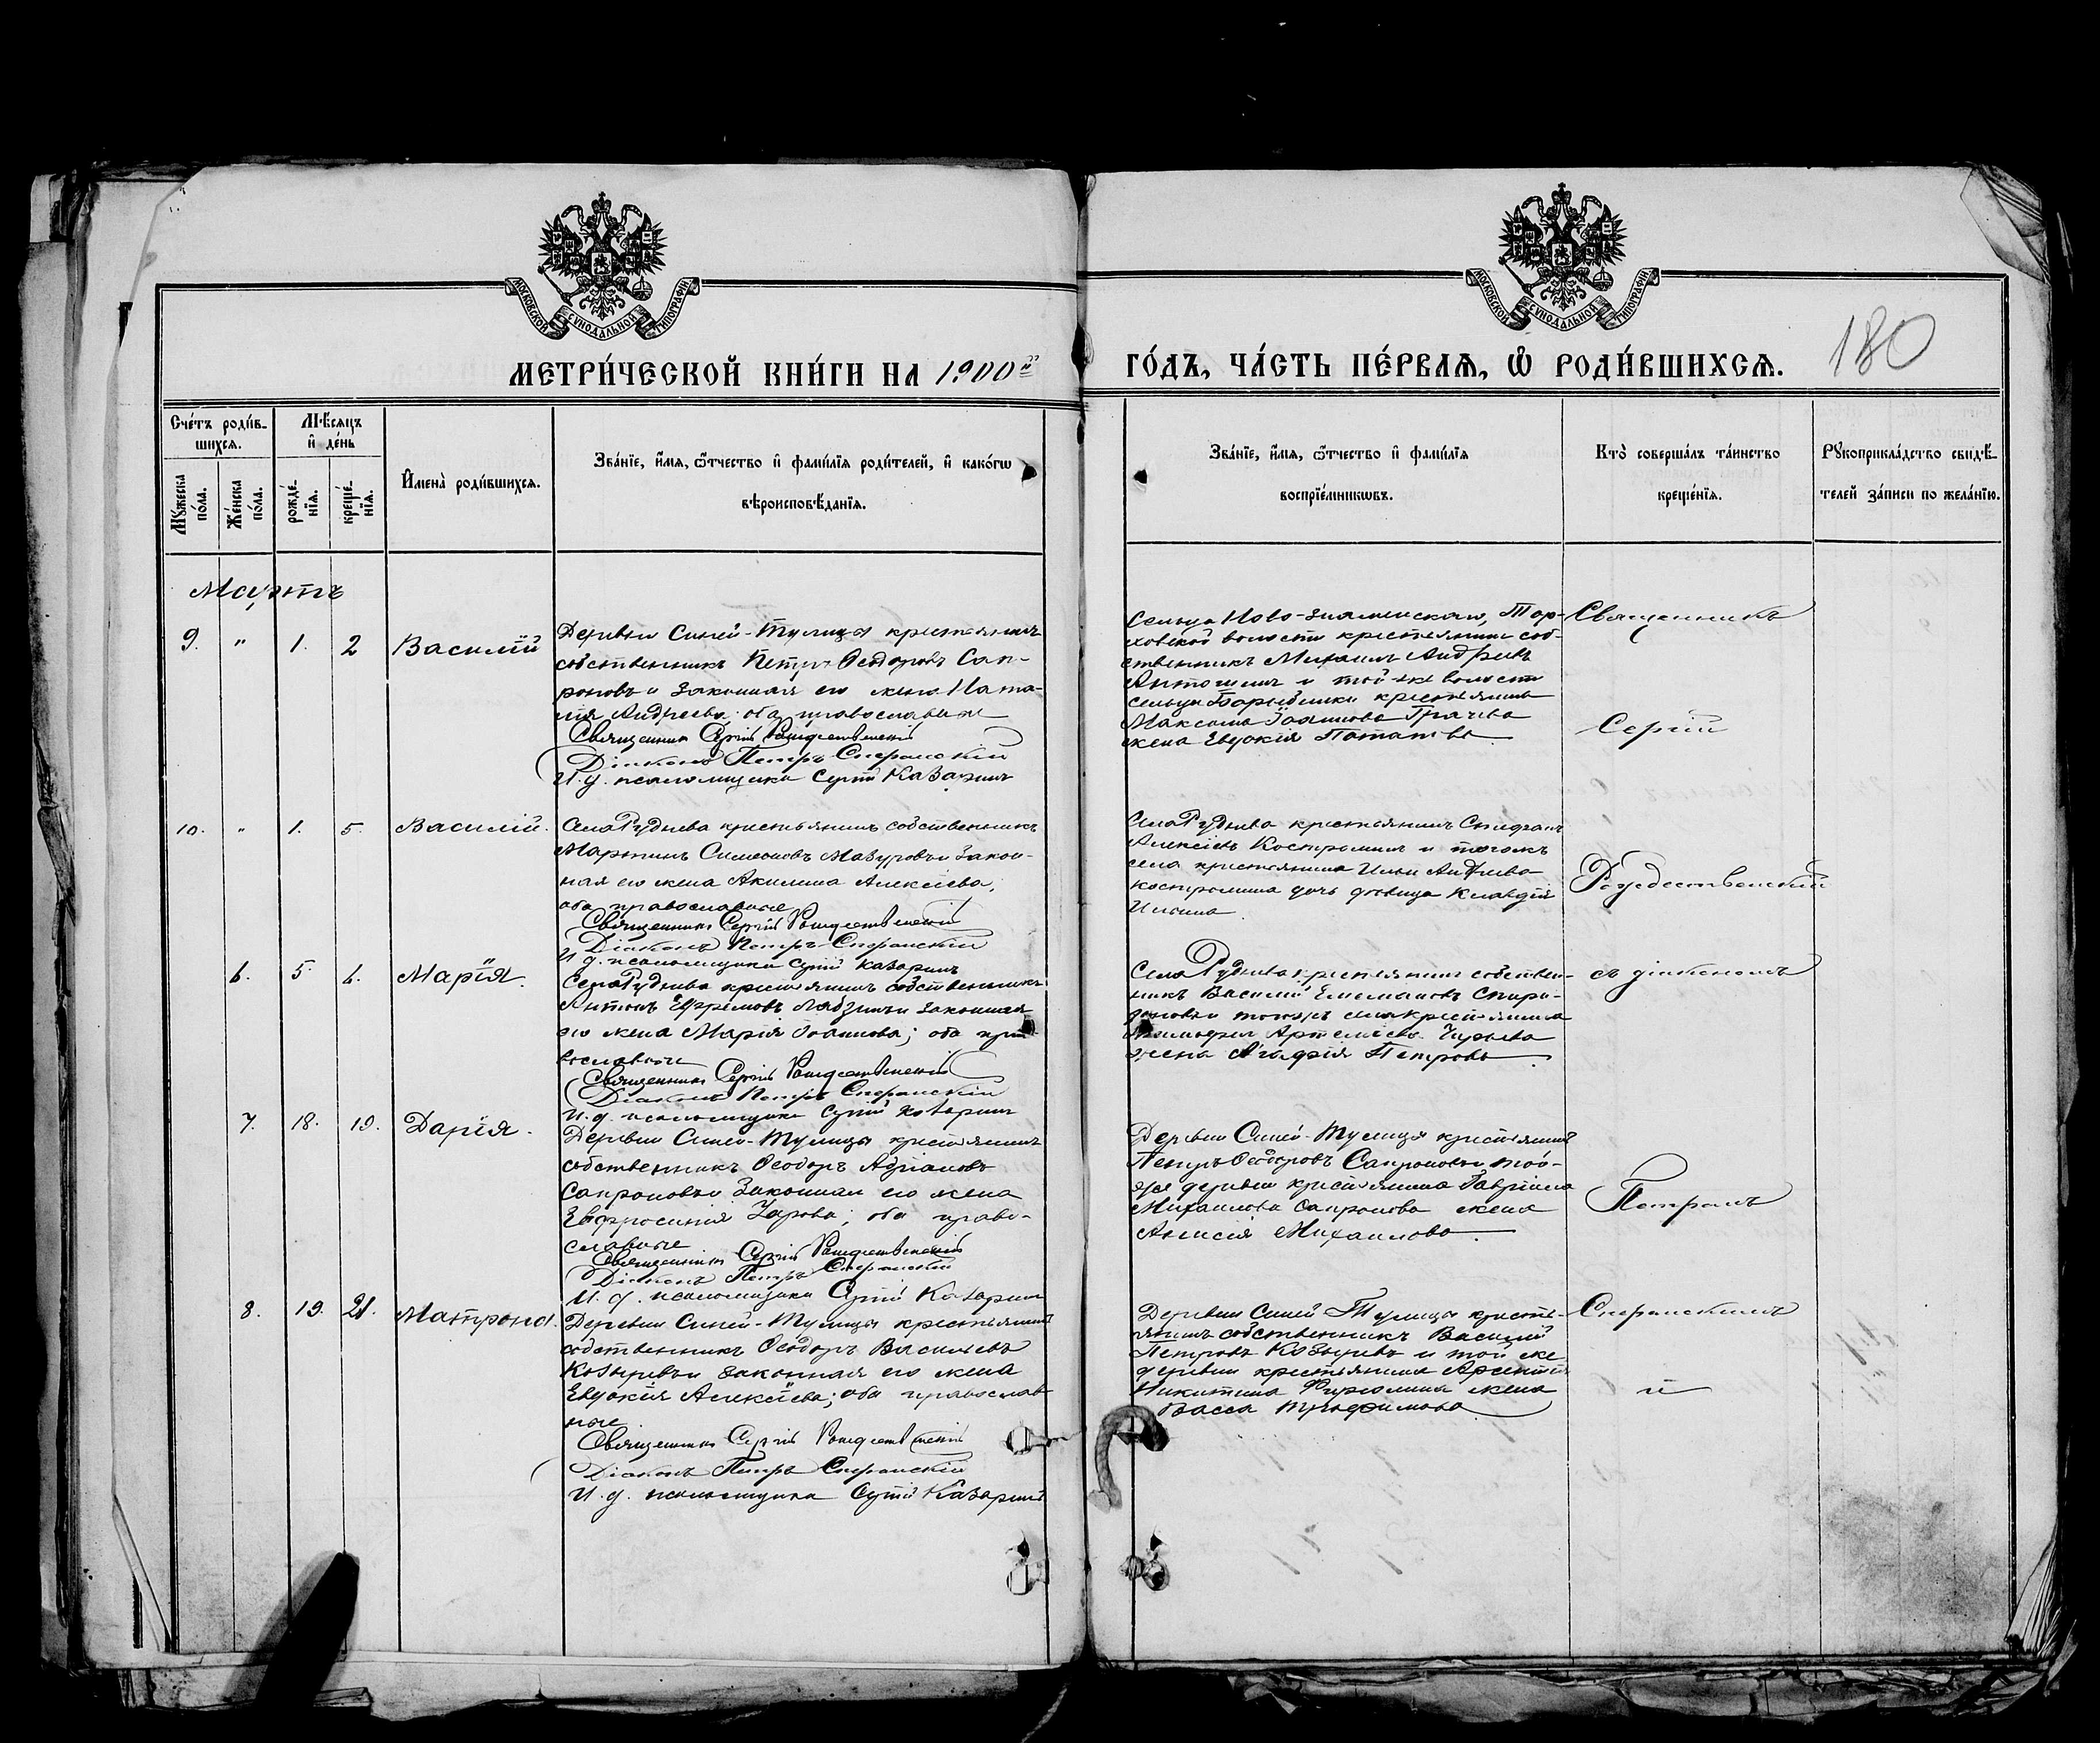 МОСКОВСКОЙ СѴНОДАЛЬНОЙ ТИПОГРАФІИ
МОСКОВСКОЙ СѴНОДАЛЬНОЙ ТИПОГРАФІИ
МЕТРИ́ЧЕСКОЙ КНИ́ГИ НА 1900й
ГО́ДЪ, ЧА́СТЬ ПЕ́РВАѦ, Ѽ РОДИ́ВШИХСѦ.
180
Сче́тъ роди́в-
шихсѧ.
Мѣ́сѧцъ
и҆ де́нь
Мꙋ́жеска
по́ла.
Же́нска
по́ла.
рожде́-
нїѧ.
креще́-
нїѧ.
И҆мена̀ роди́вшихсѧ.
Зва́нїе, и҆́мѧ, ѻ҆́тчество и҆ фами́лїѧ роди́телей, и҆ како́гѡ
вѣроисповѣ́данїѧ.
Зва́нїе, и҆́мѧ, ѻ҆́тчество и҆ фами́лїѧ
воспрїе́мникѡвъ.
Кто̀ соверша́лъ та́инство
креще́нїѧ.
Рꙋкоприкла́дство свидѣ́-
телей за́писи по жела́нїю.
Мартъ
9. " 1. 2 Василій
Деревни Синей-Тулицы крестьянинъ
собственникъ Петръ Ѳеодоровъ Сап-
роновъ и законная его жена Ната-
лія Андреева; оба православные
Священникъ Сергій Рождественскій
Діаконъ Петръ Сперанскій
И. д. псаломщика Сергій Казаринъ
Сельца Ново-знаменскаго, Тор-
ховской волости крестьянинъ соб-
ственникъ Михаилъ Андреевъ
и той-же волости
сельца крестьянина
Максима Іоаннова Грачева
жена Евдокія Потапова.
Священникъ
Сергій
10. " 1. 5. Василій.
Села Руднева крестьянинъ собственникъ
Мартинъ Симеоновъ Мазуровъ и закон-
ная его жена Акилина Алексіева;
оба православные
Священникъ Сергій Рождественскій
Діаконъ Петръ Сперанскій
И. д. псаломщика Сергій Казаринъ
Села Руднева крестьянинъ Стефанъ
Алексіевъ Костроминъ и тогожъ
села крестьянина Ильи Андреева
Костромина дочь дѣвица Клавдія
Ильина.
Рождественскій
6. 5. 6. Марія.
Села Руднева крестьянинъ собственникъ
Антонъ Ефремовъ и законная
его жена Марія Іоаннова; оба пра-
вославные
Священникъ Сергій Рождественскій
Діаконъ Петръ Сперанскій
И. д. псаломщика Сергій Казаринъ
Села Руднева крестьянинъ собствен-
никъ Василій Спири-
доновъ и тогожъ села крестьянина
Артемьева
жена Агафія Петрова.
съ діакономъ
7. 18. 19. Дарія.
Деревни Синей-Тулицы крестьянинъ
собственникъ Ѳеодоръ Адріановъ
Сапроновъ и законная его жена
Евфросинія; оба право-
славные
Священникъ Сергій Рождественскій
Діаконъ Петръ Сперанскій
И. д. псаломщика Сергій Казаринъ
Деревни Синей-Тулицы крестьянинъ
Петръ Ѳеодоровъ Сапроновъ и той-
же деревни крестьянина Гавріила
Михаилова Сапронова жена
Анисія Михаилова.
Петромъ
8. 19. 21. Матрона.
Деревни Синей-Тулицы крестьянинъ
собственникъ Ѳеодоръ Васильевъ
Козыревъ и законная его жена
Евдокія Алексіева; оба православ-
ные
Священникъ Сергій Рождественскій
Діаконъ Петръ Сперанскій
И. д. псаломщика Сергій Казаринъ
Деревни Синей Тулицы кресть-
янинъ собственникъ Василій
Петровъ Козыревъ и той же
деревни крестьянина Арсентія
Никитина жена
Васса Трофимова
Сперанскимъ
и